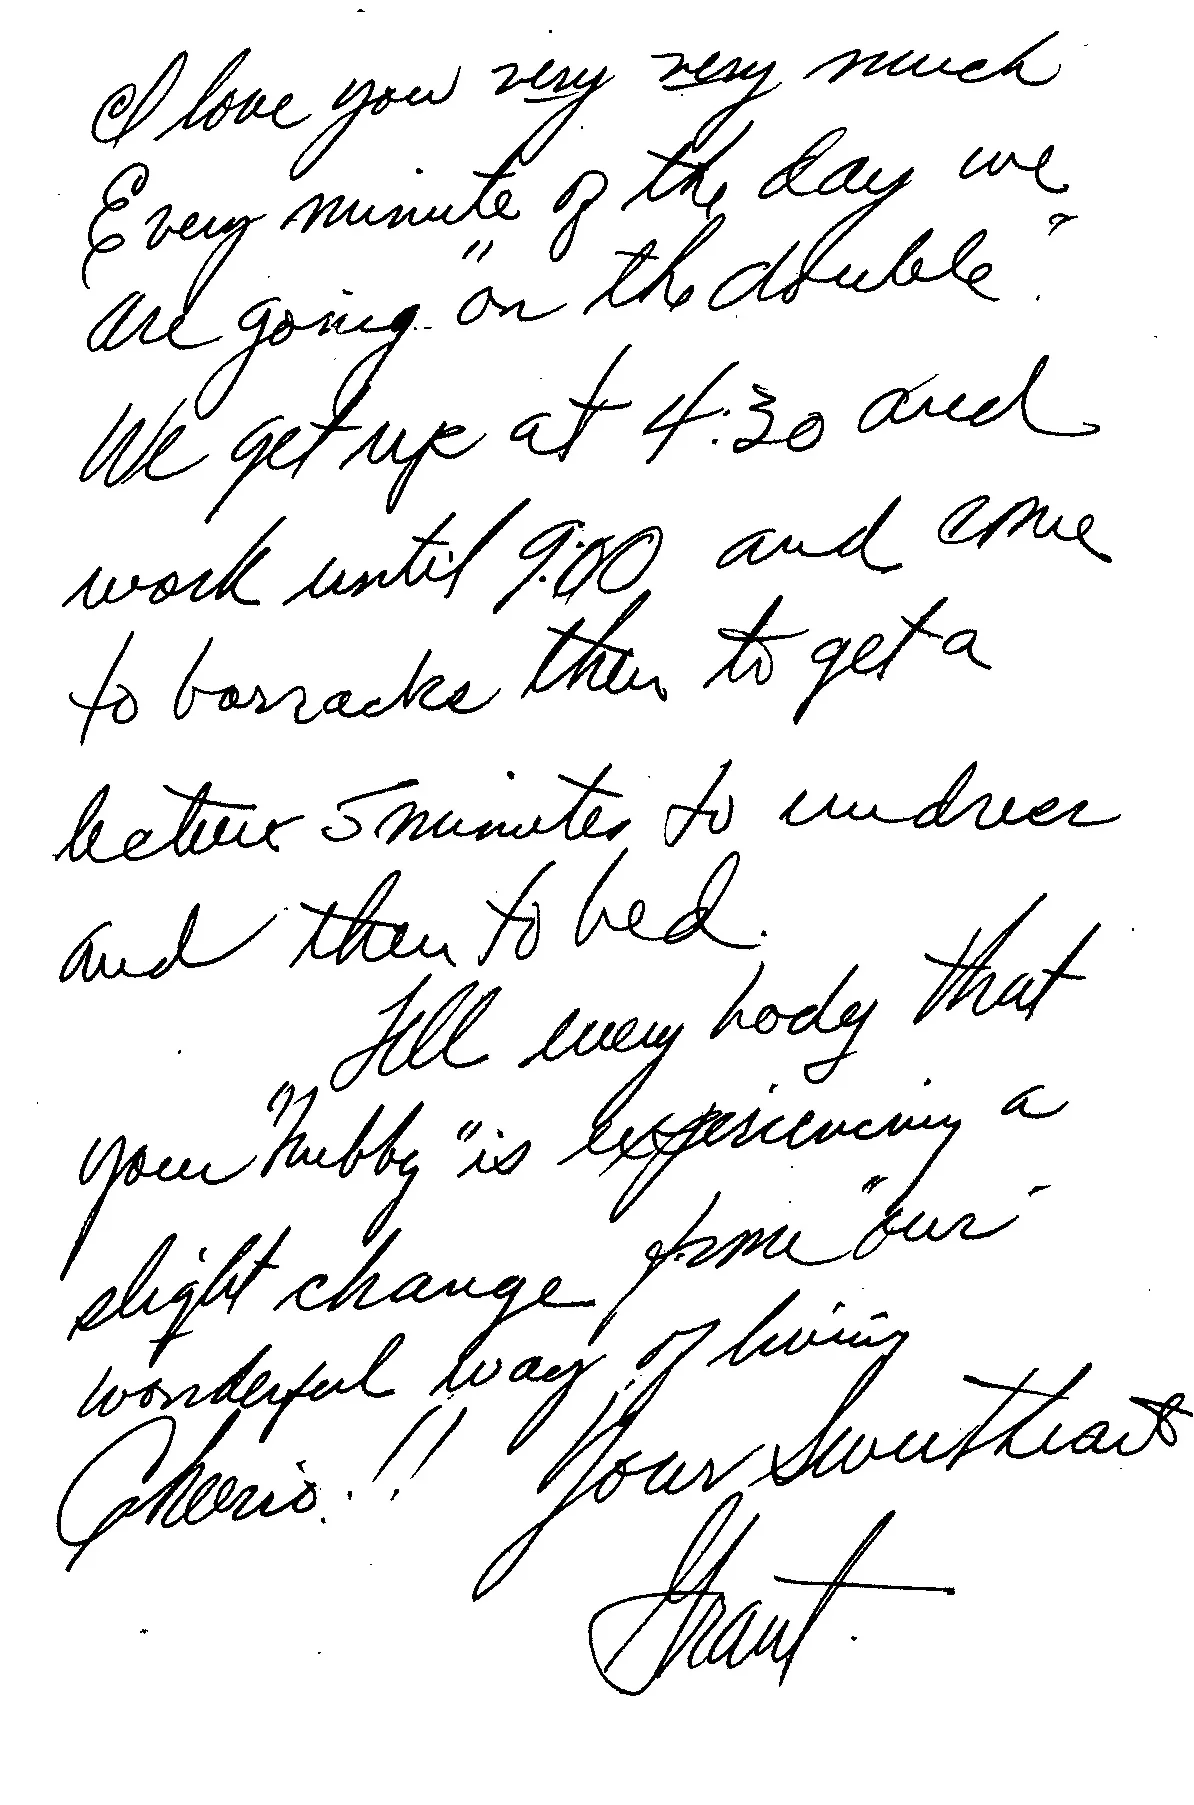 I love you very very much
Every minute of the day we
are going "on the double".
We get up at 4:30 and
work until 9:00 and come
to barracks then to get a
lecture 5 minutes to undress
and then to bed.
Tell every body that
your "hubby" is experiencing a
slight change from "our"
wonderful way of living
Cheerio!! Your Sweetheart
Grant.